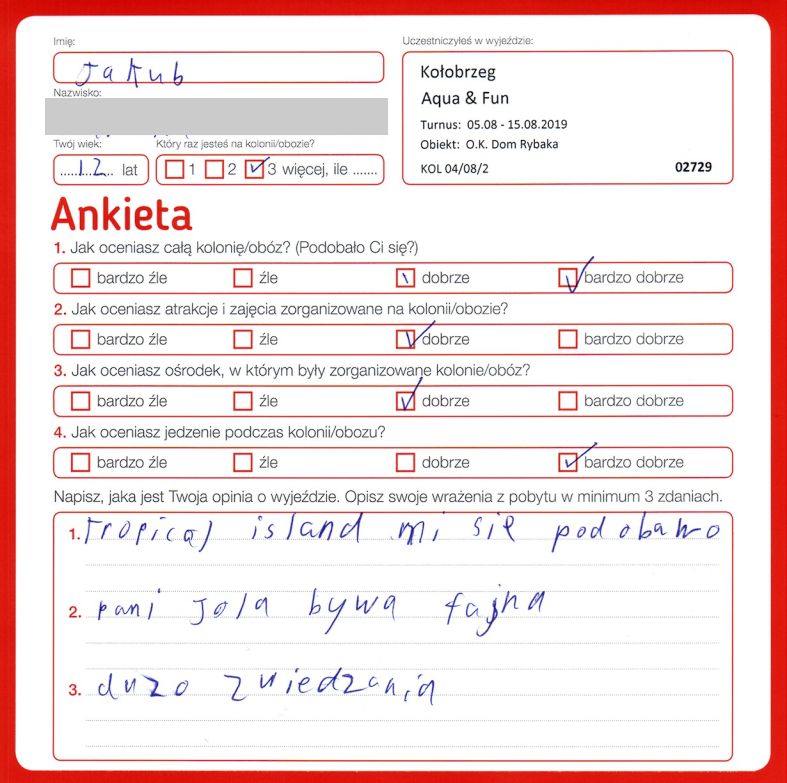 Imię:
Jakub
Nazwisko:
Twój wiek:
......12... lat
Który raz jesteś na kolonii/obozie?
1 2 3 więcej, ile .......
Uczestniczyłeś w wyjeździe:
Kołobrzeg
Aqua & Fun
Turnus: 05.08 - 15.08.2019
Obiekt: O.K. Dom Rybaka
KOL 04/08/2 02729
Ankieta
1. Jak oceniasz całą kolonię/obóz? (Podobało Ci się?)
bardzo źle źle dobrze bardzo dobrze
2. Jak oceniasz atrakcje i zajęcia zorganizowane na kolonii/obozie?
bardzo źle źle dobrze bardzo dobrze
3. Jak oceniasz ośrodek, w którym były zorganizowane kolonie/obóz?
bardzo źle źle dobrze bardzo dobrze
4. Jak oceniasz jedzenie podczas kolonii/obozu?
bardzo źle źle dobrze bardzo dobrze
Napisz, jaka jest Twoja opinia o wyjeździe. Opisz swoje wrażenia z pobytu w minimum 3 zdaniach.
1. tropical island mi się podobawo
2. pani Jola bywa fajna
3. duzo zwiedzania